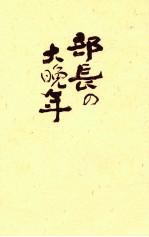 部長の
大晩年